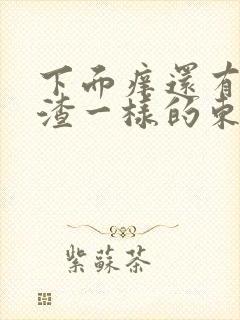 下而痒還有
渣一樣的東
紫蘇茶